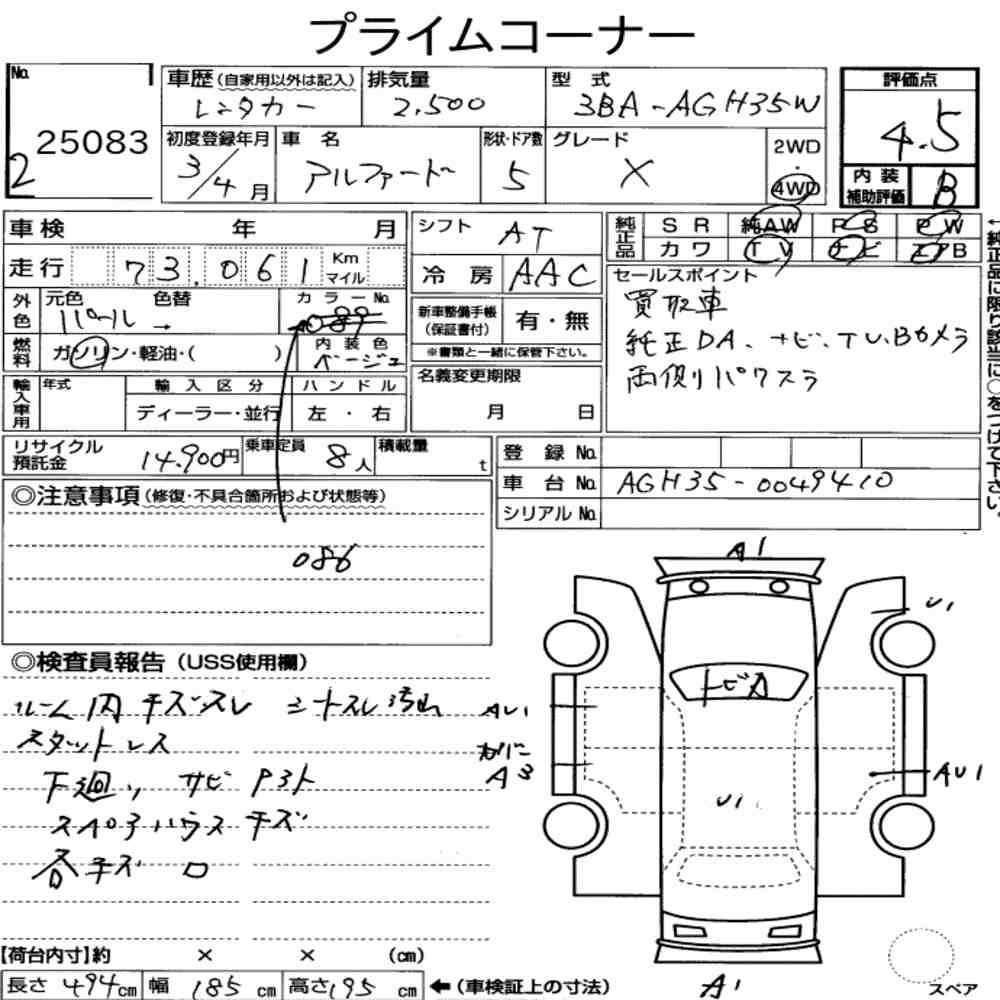 プライムコーナー
No. 25083
2
車歴(自家用以外は記入) レンタカー
排気量 2,500
型式 3BA-AGH35W
評価点 4.5
初度登録年月 3/4月
車名 アルファード
形状・ドア数 5
グレード X
2WD・4WD
内装補助評価 B
車検 年 月
走行 73,061 Km マイル
外色 元色 パール → 色替
カラーNo. 089
燃料 ガソリン・軽油・( )
内装色 ベージュ
輸入車用 年式 輸入区分 ハンドル
ディーラー・並行 左・右
シフト AT
冷房 AAC
新車整備手帳(保証書付) 有・無
※書類と一緒に保管下さい。
名義変更期限
月 日
純正品 SR 純AW PS PW
カワ TV ナビ エアB
←純正品に限り該当に○をつけて下さい。
セールスポイント
買取車
純正DA、ナビ、TV、Bカメラ
両側パワスラ
リサイクル預託金 14,900円
乗車定員 8人
積載量 t
登録No.
車台No. AGH35-0049410
シリアルNo.
◎注意事項(修復・不具合箇所および状態等)
086
◎検査員報告(USS使用欄)
ルーム内キズスレ シートスレ汚れ
スタットレス
下廻り サビ
キズ
各キズ
A1
U1
トビA
AU1
A3
U1
AU1
A1
スペア
【荷台内寸】約 × × (cm)
長さ 494cm 幅 185cm 高さ 195cm ←(車検証上の寸法)